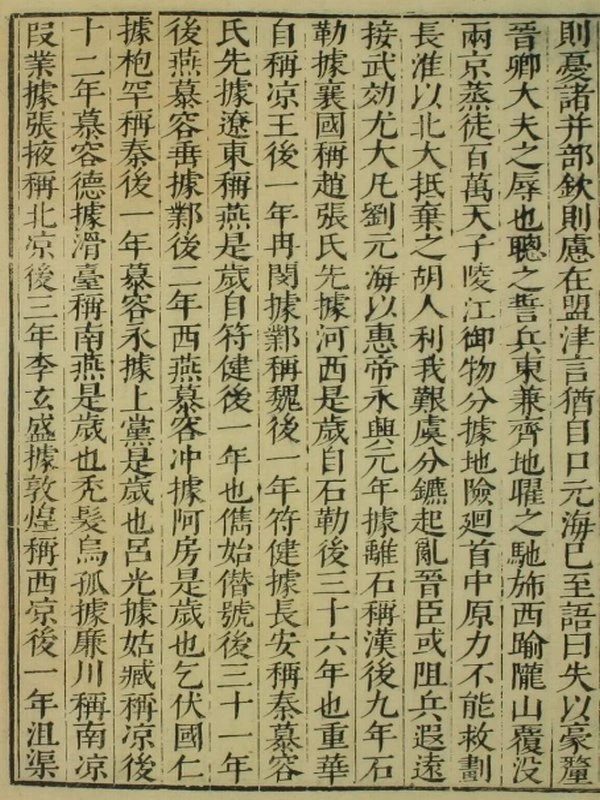 則憂諸并部欽則慮在盟津言猶自口元海已至語曰失以豪釐
晉卿大夫之辱也聰之誓兵東兼齊地曜之馳斾西踰隴山覆没
兩京蒸徒百萬天子陵江御物分據地險廻首中原力不能救劃
長淮以北大抵棄之胡人利我艱虞分鑣起亂晉臣或阻兵遐遠
接武効尤大凡劉元海以惠帝永興元年據離石稱漢後九年石
勒據襄國稱趙張氏先據河西是歲自石勒後三十六年也重華
自稱凉王後一年冉閔據鄴稱魏後一年符健據長安稱秦慕容
氏先據遼東稱燕是歲自符健後一年也儁始僭號後三十一年
後燕慕容垂據鄴後二年西燕慕容冲據阿房是歲也乞伏國仁
據枹罕稱秦後一年慕容永據上黨是歲也呂光據姑臧稱凉後
十二年慕容德據滑臺稱南燕是歲也秃髮烏孤據廉川稱南凉
叚業據張掖稱北凉後三年李玄盛據敦煌稱西凉後一年沮渠